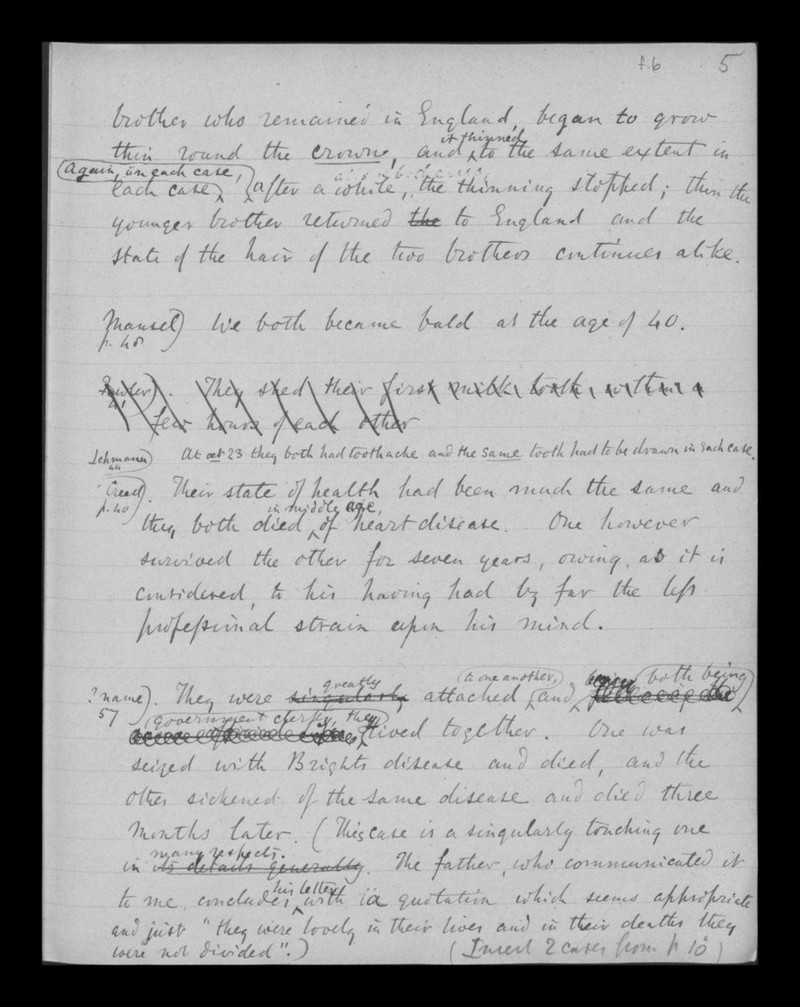 f.6 5
brother who remained in England, began to grow
it thinned
thin round the crown, and to the same extent in
Again, in each case,
each case, after a while, the thinning stopped; then the
younger brother returned the to England and the
state of the hair of the two brothers continues alike.
Mansel) We both became bald at the age of 40.
p. 48
They shed their first milk tooth, within a
few hours of each other
Lehmann) At aet 23 they both had toothache and the same tooth had to be drawn in each case.
44
Their state of health had been much the same and
p. 40
in middle age,
they both died of heart disease. One however
survived the other for seven years, owing, as it is
considered, to his having had by far the less
professional strain upon his mind.
greatly (to one another,) both being
? name). They were singularly attached and
57 (government clerks, they
lived together. One was
seized with Brights disease and died, and the
other sickened of the same disease and died three
months later. (This case is a singularly touching one
many respects.
in its details generally. The father, who communicated it
his letter
to me, concludes with a quotation which seems appropriate
and just "they were lovely in their lives and in their deaths they
were not divided".) (Insert 2 cases from p 10)